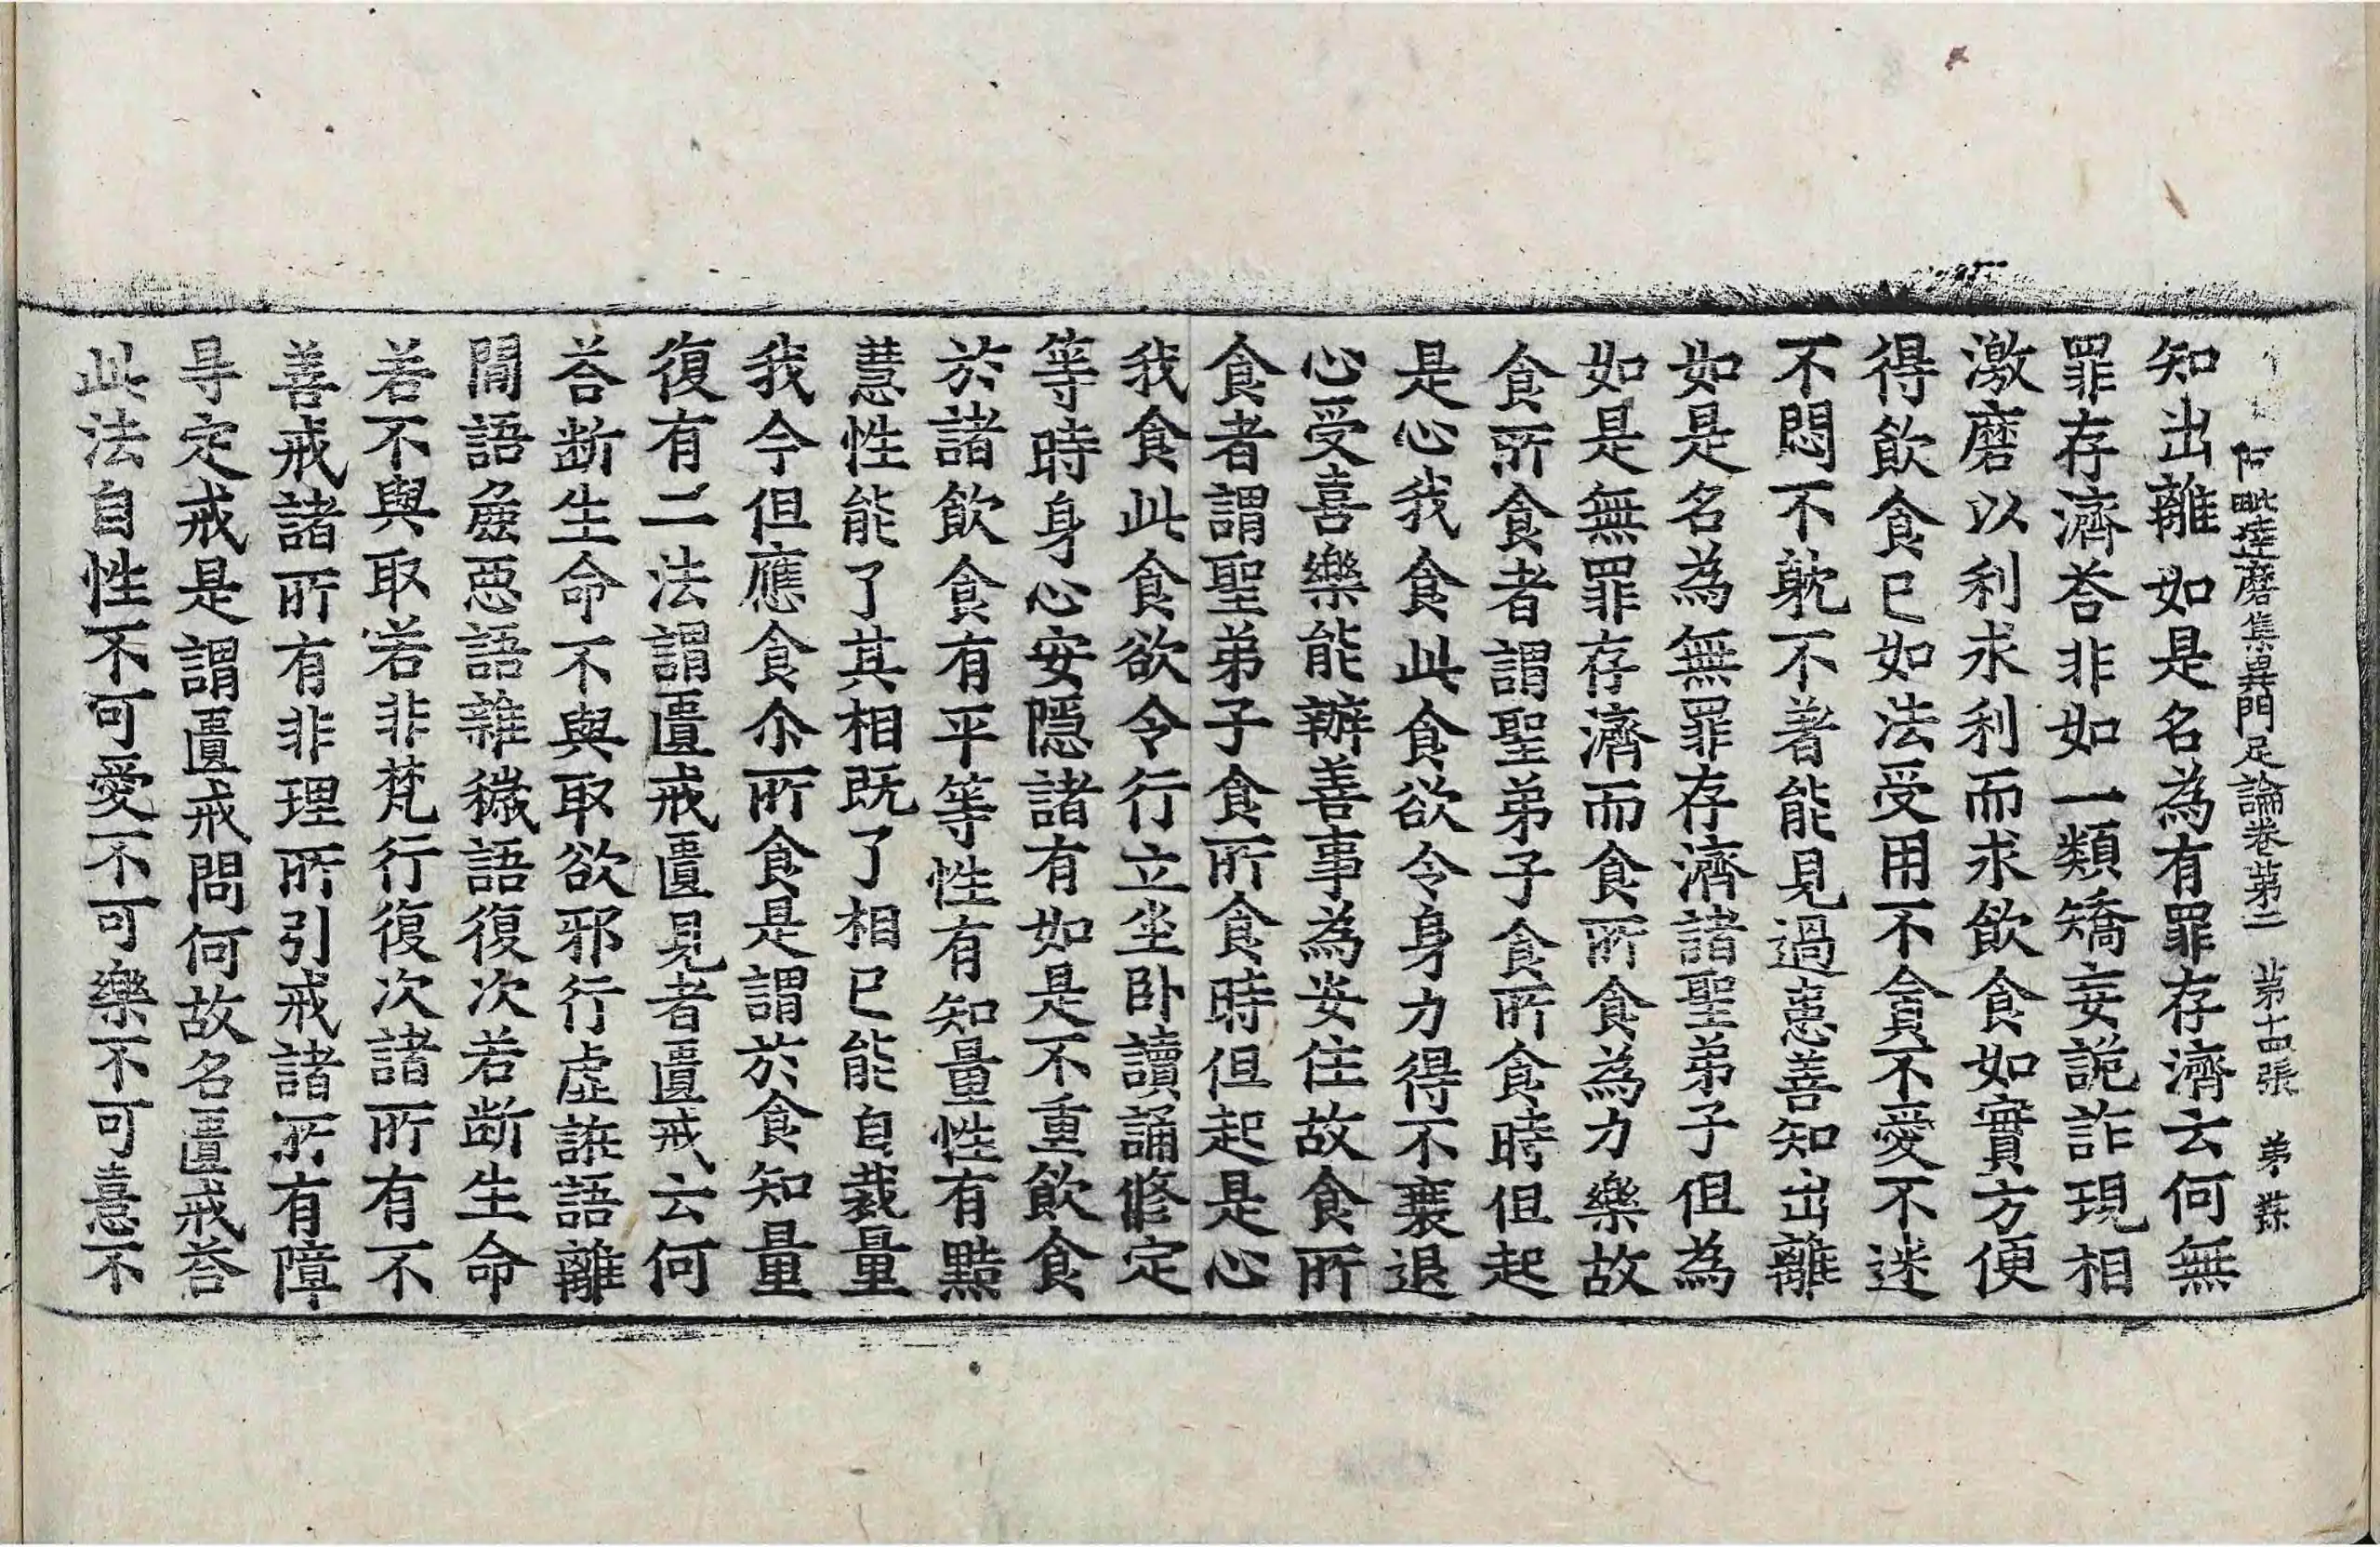 阿毗達磨集異門足論卷第二　第十四張　弟
知出離如是名為有罪存濟云何無
罪存濟荅非如一類矯妄詭詐現相
激磨以利求利而求飲食如實方便
得飲食已如法受用不貪不愛不迷
不悶不躭不著能見過患善知出離
如是名為無罪存濟諸聖弟子但為
如是無罪存濟而食所食為力樂故
食所食者謂聖弟子食所食時但起
是心我食此食欲令身力得不衰退
心受喜樂能辦善事為安住故食所
食者謂聖弟子食所食時但起是心
我食此食欲令行立坐卧讀誦修定
等時身心安隱諸有如是不重飲食
於諸飲食有平等性有知量性有黠
慧性能了其相既了相已能自裁量
我今但應食尒所食是謂於食知量
復有二法謂匱戒匱見者匱戒云何
荅断生命不與取欲邪行虛誑語離
間語麁惡語雜穢語復次若断生命
若不與取若非梵行復次諸所有不
善戒諸所有非理所引戒諸所有障
㝵定戒是謂匱戒問何故名匱戒荅
此法自性不可愛不可樂不可憙不